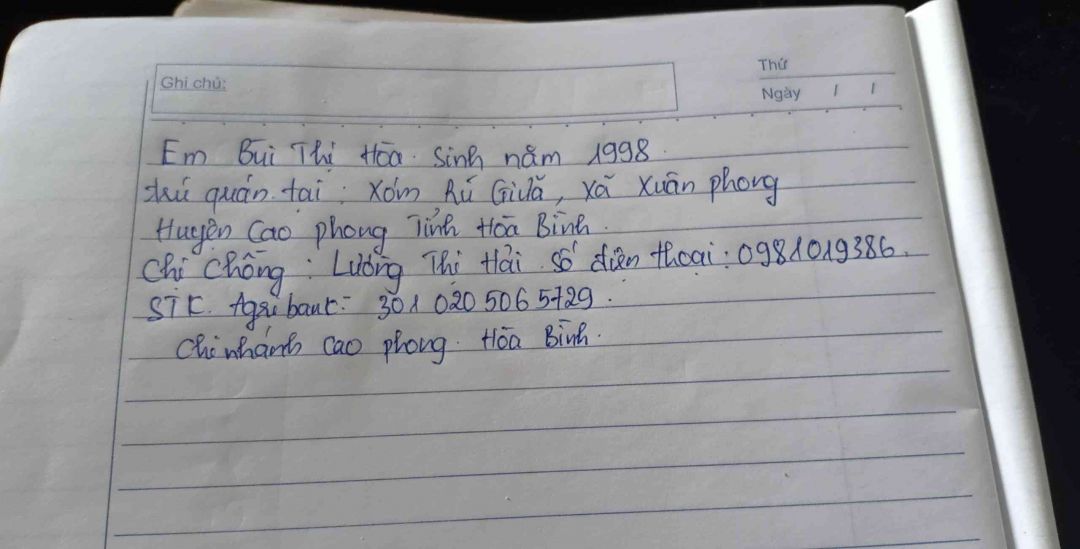 Ghi chú:
Thứ
Ngày / /
Em Bùi Thị Hòa. Sinh năm 1998.
trú quán tại: Xóm Rú Giữa, xã Xuân phong
Huyện Cao phong Tỉnh Hòa Bình.
Chị Chồng: Lường Thị Hải. Số điện thoại: 0981019386.
STK. Agribank: 301 020 506 5729.
Chi nhánh Cao phong. Hòa Bình.